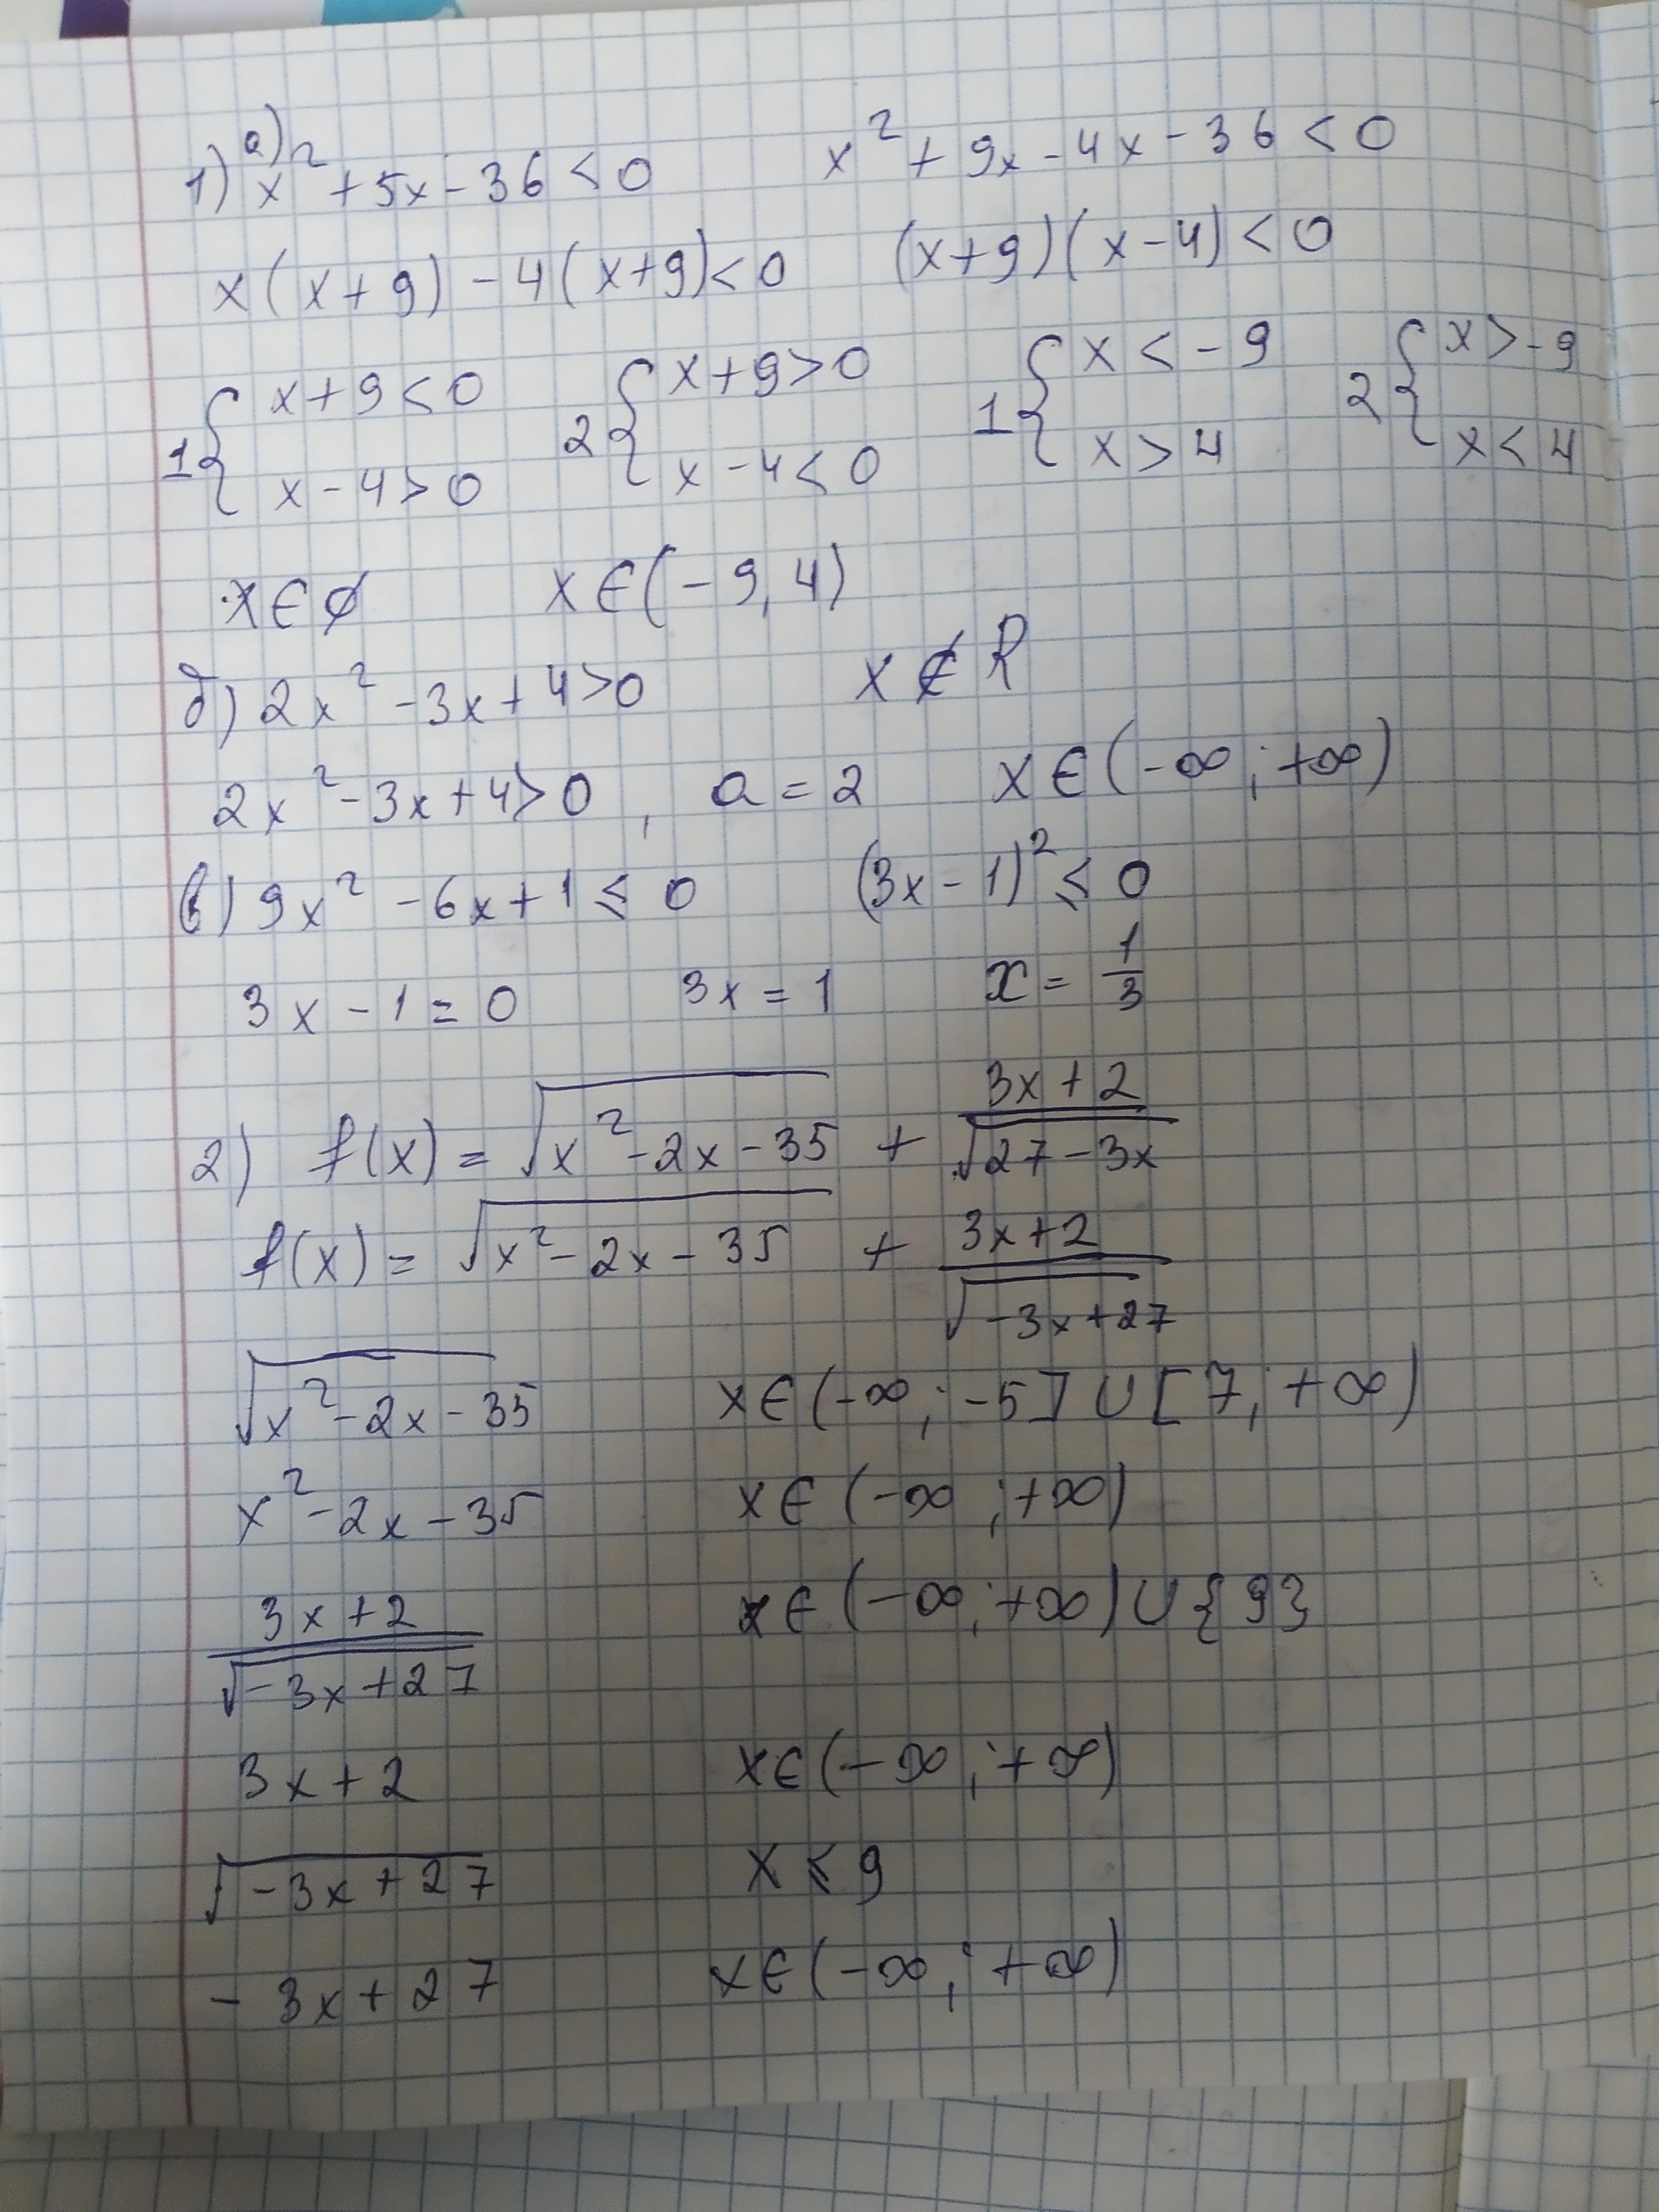 1) а) x² + 5x - 36 < 0 x² + 9x - 4x - 36 < 0
x(x+9) - 4(x+9) < 0 (x+9)(x-4) < 0
1 { x+9 < 0 2 { x+9 > 0 1 { x < -9 2 { x > -9
x-4 > 0 x-4 < 0 x > 4 x < 4
x ∈ ∅ x ∈ (-9, 4)
б) 2x² - 3x + 4 > 0 x ∉ R
2x² - 3x + 4 > 0, a = 2 x ∈ (-∞; +∞)
в) 9x² - 6x + 1 ⩽ 0 (3x - 1)² ⩽ 0
3x - 1 = 0 3x = 1 x = 1/3
2) f(x) = √(x² - 2x - 35) + (3x+2)/√(27-3x)
f(x) = √(x² - 2x - 35) + (3x+2)/√(-3x+27)
√(x² - 2x - 35) x ∈ (-∞; -5] ∪ [7; +∞)
x² - 2x - 35 x ∈ (-∞; +∞)
(3x+2)/√(-3x+27) x ∈ (-∞; +∞) ∪ {9}
3x + 2 x ∈ (-∞; +∞)
√(-3x+27) x ⩽ 9
-3x + 27 x ∈ (-∞; +∞)